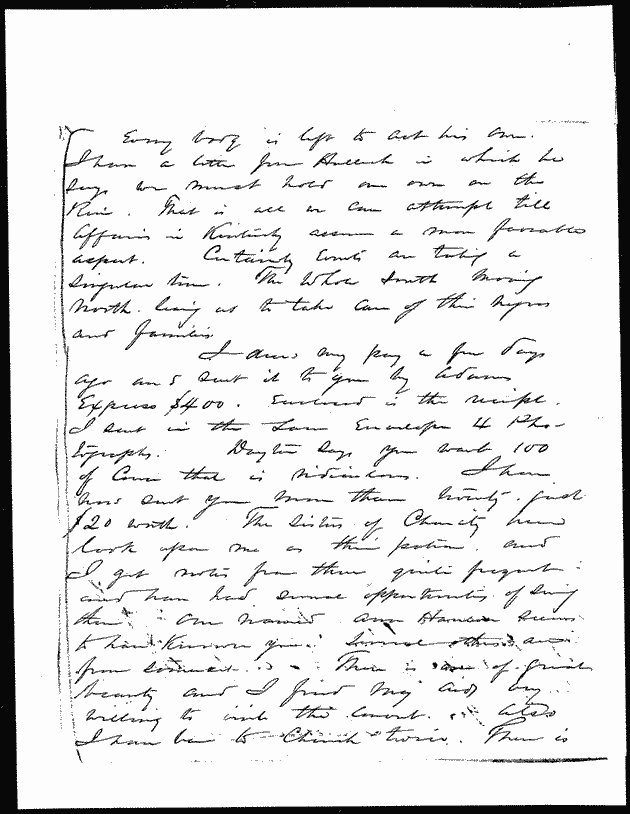 Every body is left to act his own.
I have a letter from Halleck in which he
says we must hold our own on the
River. That is all we can attempt till
affairs in Kentucky assume a more favorable
aspect. Certainly Events are taking a
singular turn. The Whole South Moving
North. leaving us to take care of their negros
and families
I drew my pay a few days
ago and sent it to you by Adams
Express $400. Enclosed is the receipt.
I sent in the Same Envelope 4 Pho-
tographs. Dayton says you want 100
of Course that is ridiculous. I have
now sent you more than twenty. just
$20 worth. The Sisters of Charity here
look upon me as their patron. and
I get notes from them quite frequent
and have had several opportunities of seeing
them one named Ann seems
to have known you. 
from There is one of great
beauty and I find my aids very
willing to visit the Convent. also
I have been to Church twice. There is